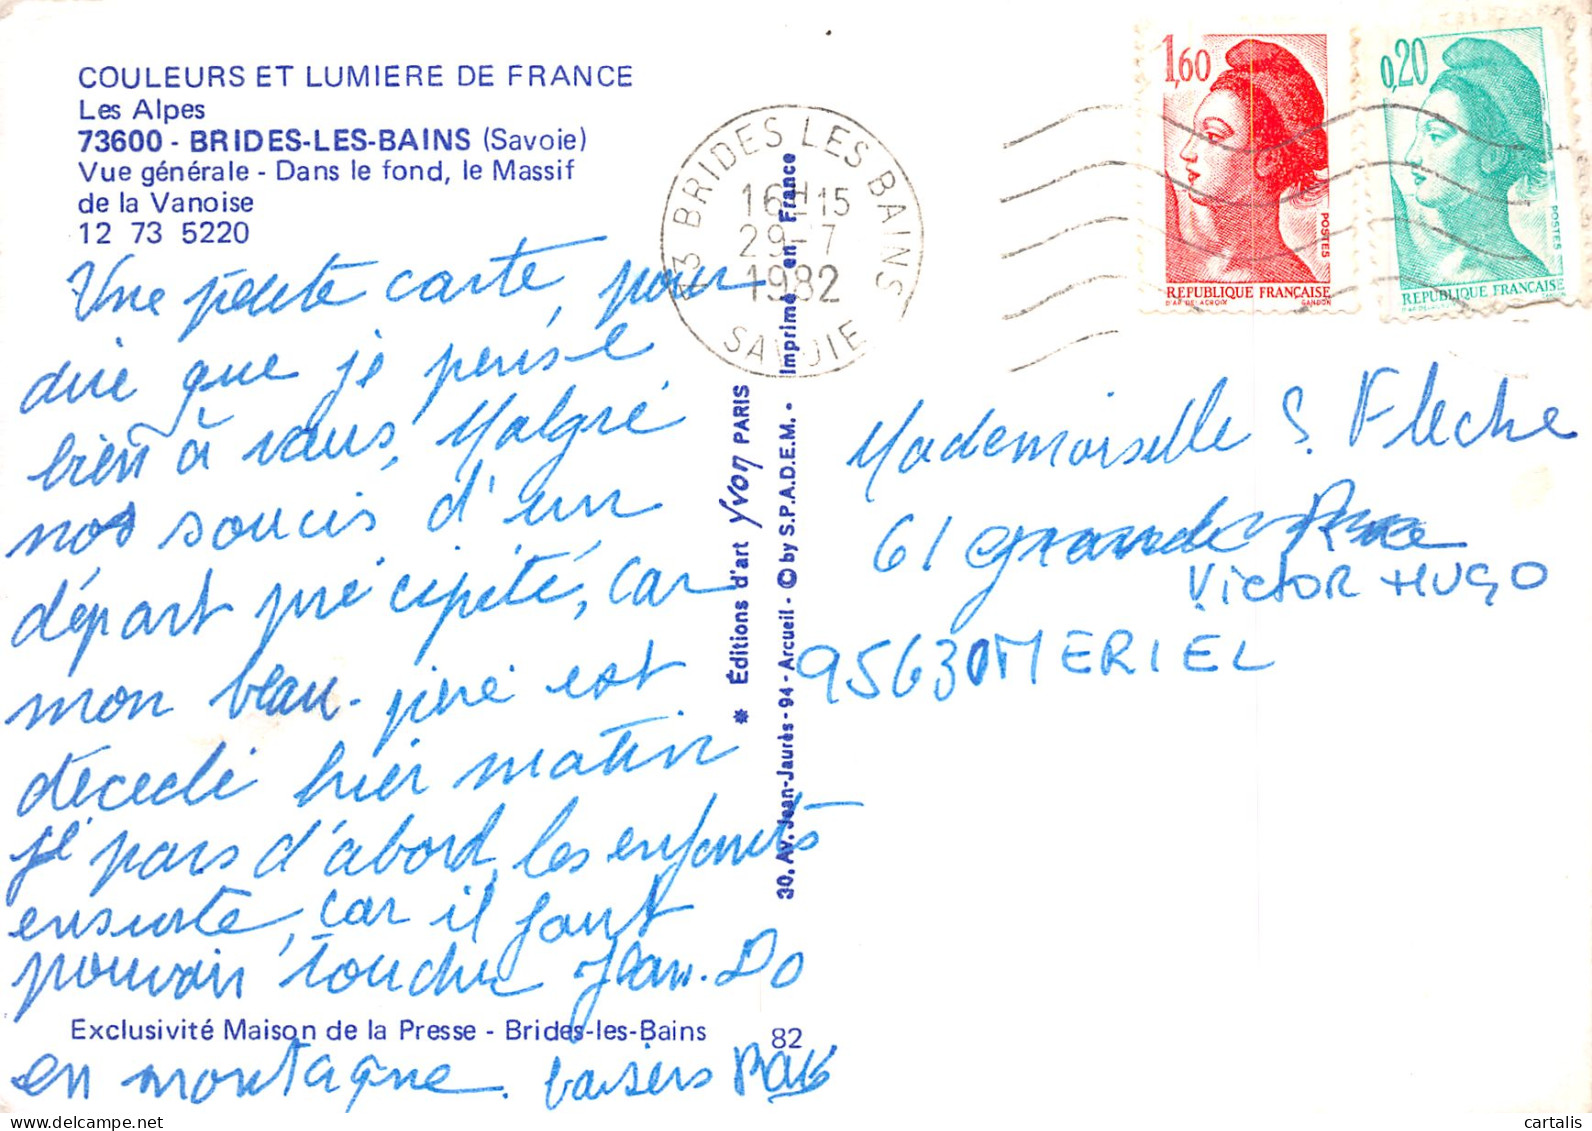 COULEURS ET LUMIERE DE FRANCE
Les Alpes
73600 - BRIDES-LES-BAINS (Savoie)
Vue générale - Dans le fond, le Massif
de la Vanoise
12 73 5220
Une petite carte, pour
dire que je pense
bien à vous, Malgré
nos soucis d'un
départ précipité, car
mon beau-père est
décédé hier matin
je pars d'abord les enfants
ensuite, car il faut
pouvoir toucher Jean-Do
en montagne. baisers
Exclusivité Maison de la Presse - Brides-les-Bains
82
* Éditions d'art Yvon PARIS
30, Av. Jean-Jaurès - 94 - Arcueil - © by S.P.A.D.E.M. - Imprimé en France
73 BRIDES LES BAINS
16H15
29-7
1982
SAVOIE
1,60
POSTES
REPUBLIQUE FRANÇAISE
D'AP. DELACROIX GANDON
0,20
POSTES
REPUBLIQUE FRANÇAISE
D'AP. DELACROIX GANDON
Mademoiselle S. Fleche
61 grande Rue
VICTOR HUGO
95630 MERIEL
cartalis